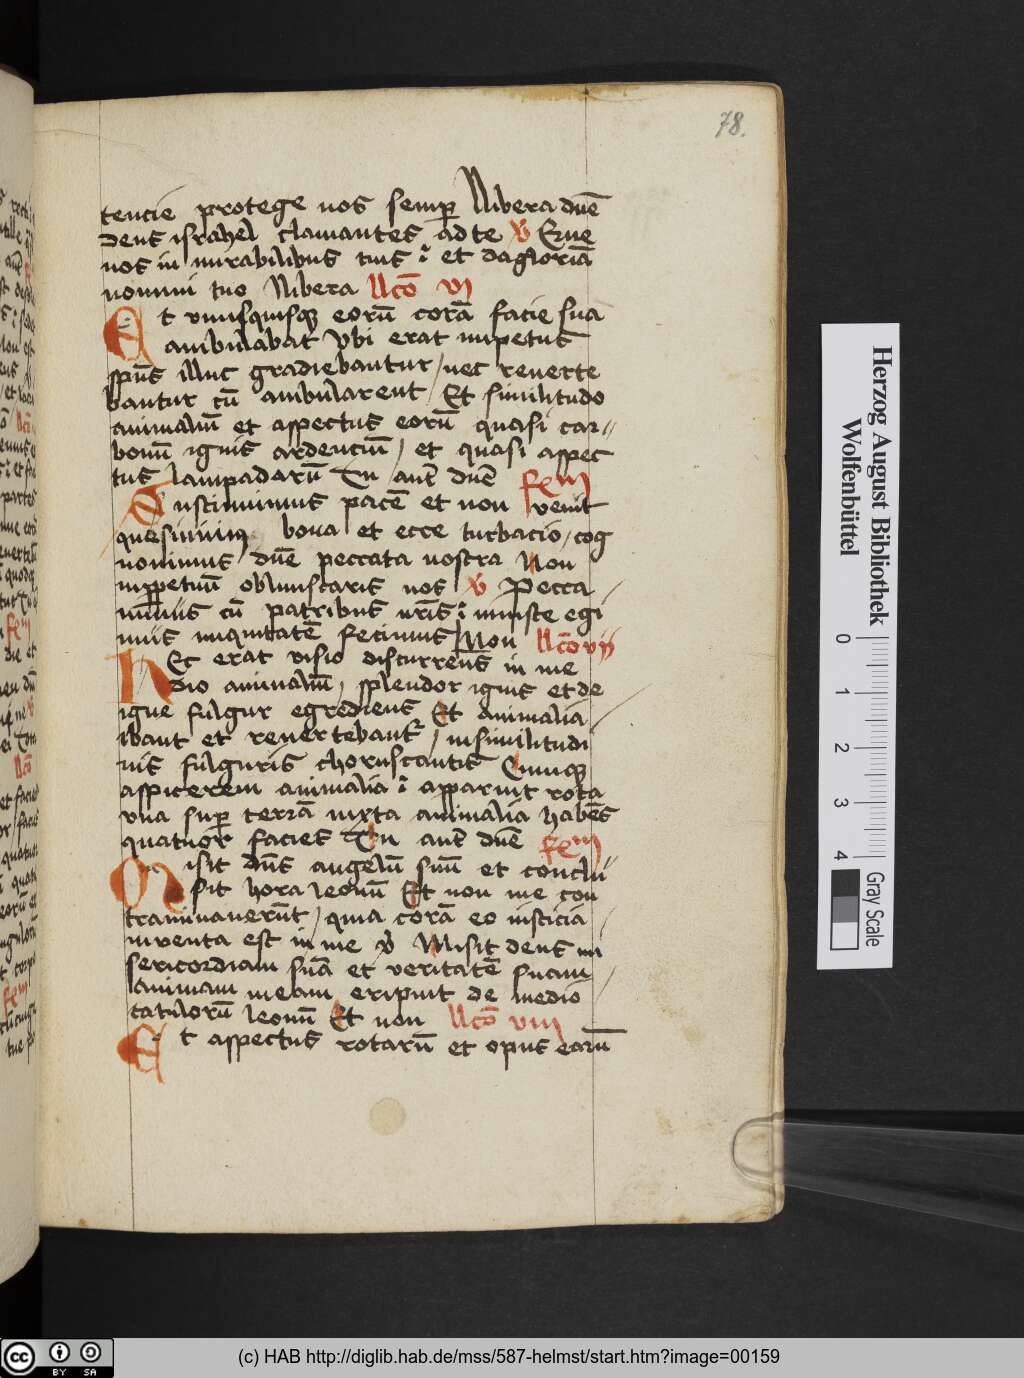 78.
tencie protege nos semꝑ Libera dn̄e
deus israhel clamantes ad te v̄ Erue
nos in mirabilibus tuis : et da gloriā
nomini tuo Libera Lc̄o vj
Et vnusquisqꝫ eorū corā facie sua
ambulabat vbi erat impetus
sp̄us illuc gradiebantur / nec reuerte
bantur cū ambularent / Et similitudo
animaliū et aspectus eorū quasi car//
bonū ignis ardenciū / et quasi aspec
tus lampadarū Tu aut̄ dn̄e
Sustinuimus pacē et non venit
quesiuimꝰ bona et ecce turbacio / cog
nouimus dn̄e peccata nostra Non
inperpetuū obliuiscaris nos v̄ Pecca /
uimus cū patribus nr̄is : iniuste egi
mus iniquitatē fecimus Non Lc̄o vij
Hec erat visio discurrens in me
dio animaliū / splendor ignis et de
igne fulgur egrediens Et animalia /
ibant et reuertebant̄ / in similitudi
nis fulguris choruscantis Cumqꝫ
aspicerem animalia : apparuit rota
vna suꝑ terrā iuxta animalia habēs
quatuor facies Tu aut̄ dn̄e
Misit dn̄s angelū suū et conclu
sit hora leonū Et non me con
traminauerūt / quia corā eo iusticia /
inuenta est in me v̄ Misit deus mi
sericordiam suā et veritatē suam /
animam meam eripuit de medio /
catulorū leonū Et non Lc̄o viij
Et aspectus rotarū et opus earū
Herzog August Bibliothek
Wolfenbüttel
0 1 2 3 4
Gray Scale
cc BY SA
(c) HAB http://diglib.hab.de/mss/587-helmst/start.htm?image=00159